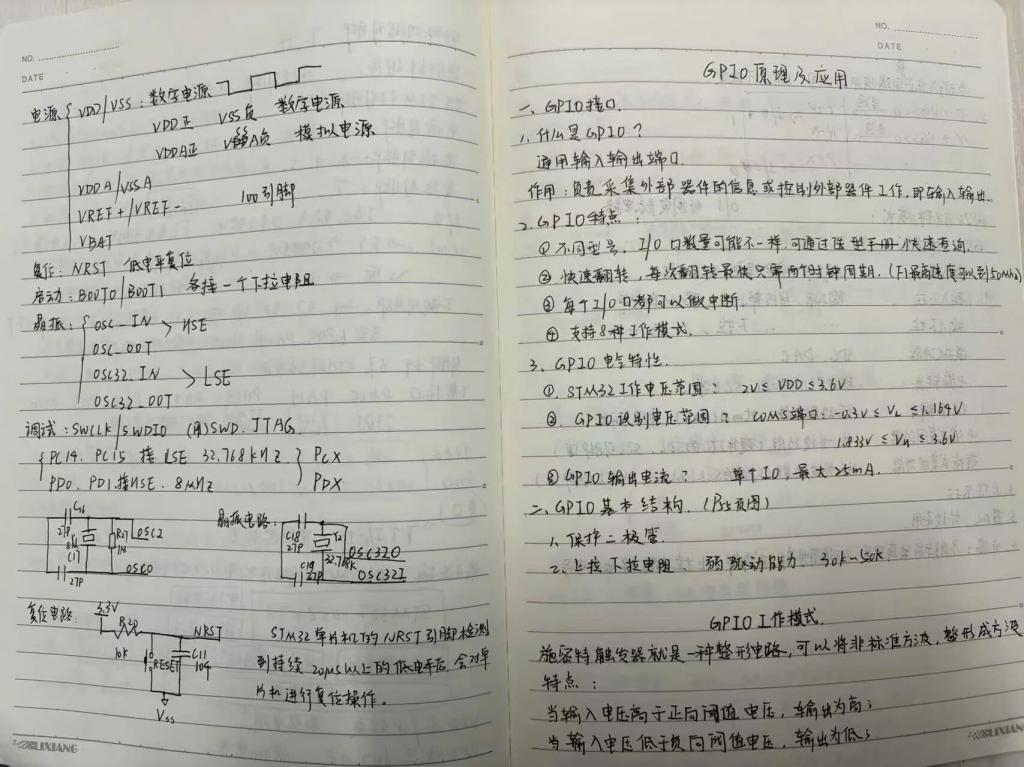 NO.
DATE
电源 { VDD/VSS : 数字电源
VDD正 VSS负 数字电源
VDDA正 VSSA负 模拟电源
VDDA/VSSA
VREF+/VREF- 100引脚
VBAT
复位: NRST 低电平复位
启动: BOOT0/BOOT1 各接一个下拉电阻
晶振: { OSC_IN > HSE
OSC_OOT
OSC32_IN > LSE
OSC32_OOT
调试: SWCLK/SWDIO (用)SWD. JTAG.
{ PC14. PC15 接 LSE 32.768kHZ. } PCX
PD0. PD1.接HSE. 8MHZ PDX
C16
27P
8M
C17
27P
R27
1M
OSC2
OSCO
晶振电路:
C18
27P
C19
27P
Y2
32.768K
OSC32O
OSC32I
复位电路:
3.3V
R30
10K
NRST
RESET
C11
104
Vss
STM32单片机的NRST引脚检测
到持续20μs以上的低电平后,会对单
片机进行复位操作。
LIXIANG
NO.
DATE
GPIO原理及应用
一、GPIO接口.
1.什么是GPIO?
通用输入输出端口.
作用:负责采集外部器件的信息或控制外部器件工作,即输入输出.
2.GPIO特点:
① 不同型号, I/O口数量可能不一样,可通过选型手册快速查询.
② 快速翻转,每次翻转最快只需两个时钟周期.(F1最高速度可以到50MhZ)
③ 每个I/O口都可以做中断.
④ 支持8种工作模式.
3. GPIO电气特性.
①. STM32工作电压范围: 2V≤ VDD≤3.6V
②. GPIO识别电压范围: COMS端口: -0.3V ≤ VL ≤1.164V
1.833V ≤ VH ≤ 3.6V
③GPIO输出电流: 单个IO,最大25mA.
二、GPIO基本结构.
1.保护二极管.
2.上拉、下拉电阻. 弱驱动能力. 30k~50k.
GPIO工作模式.
施密特触发器就是一种整形电路,可以将非标准方波,整形成方波
特点:
当输入电压高于正向阈值电压,输出为高;
当输入电压低于负向阈值电压,输出为低;
LIXIANG